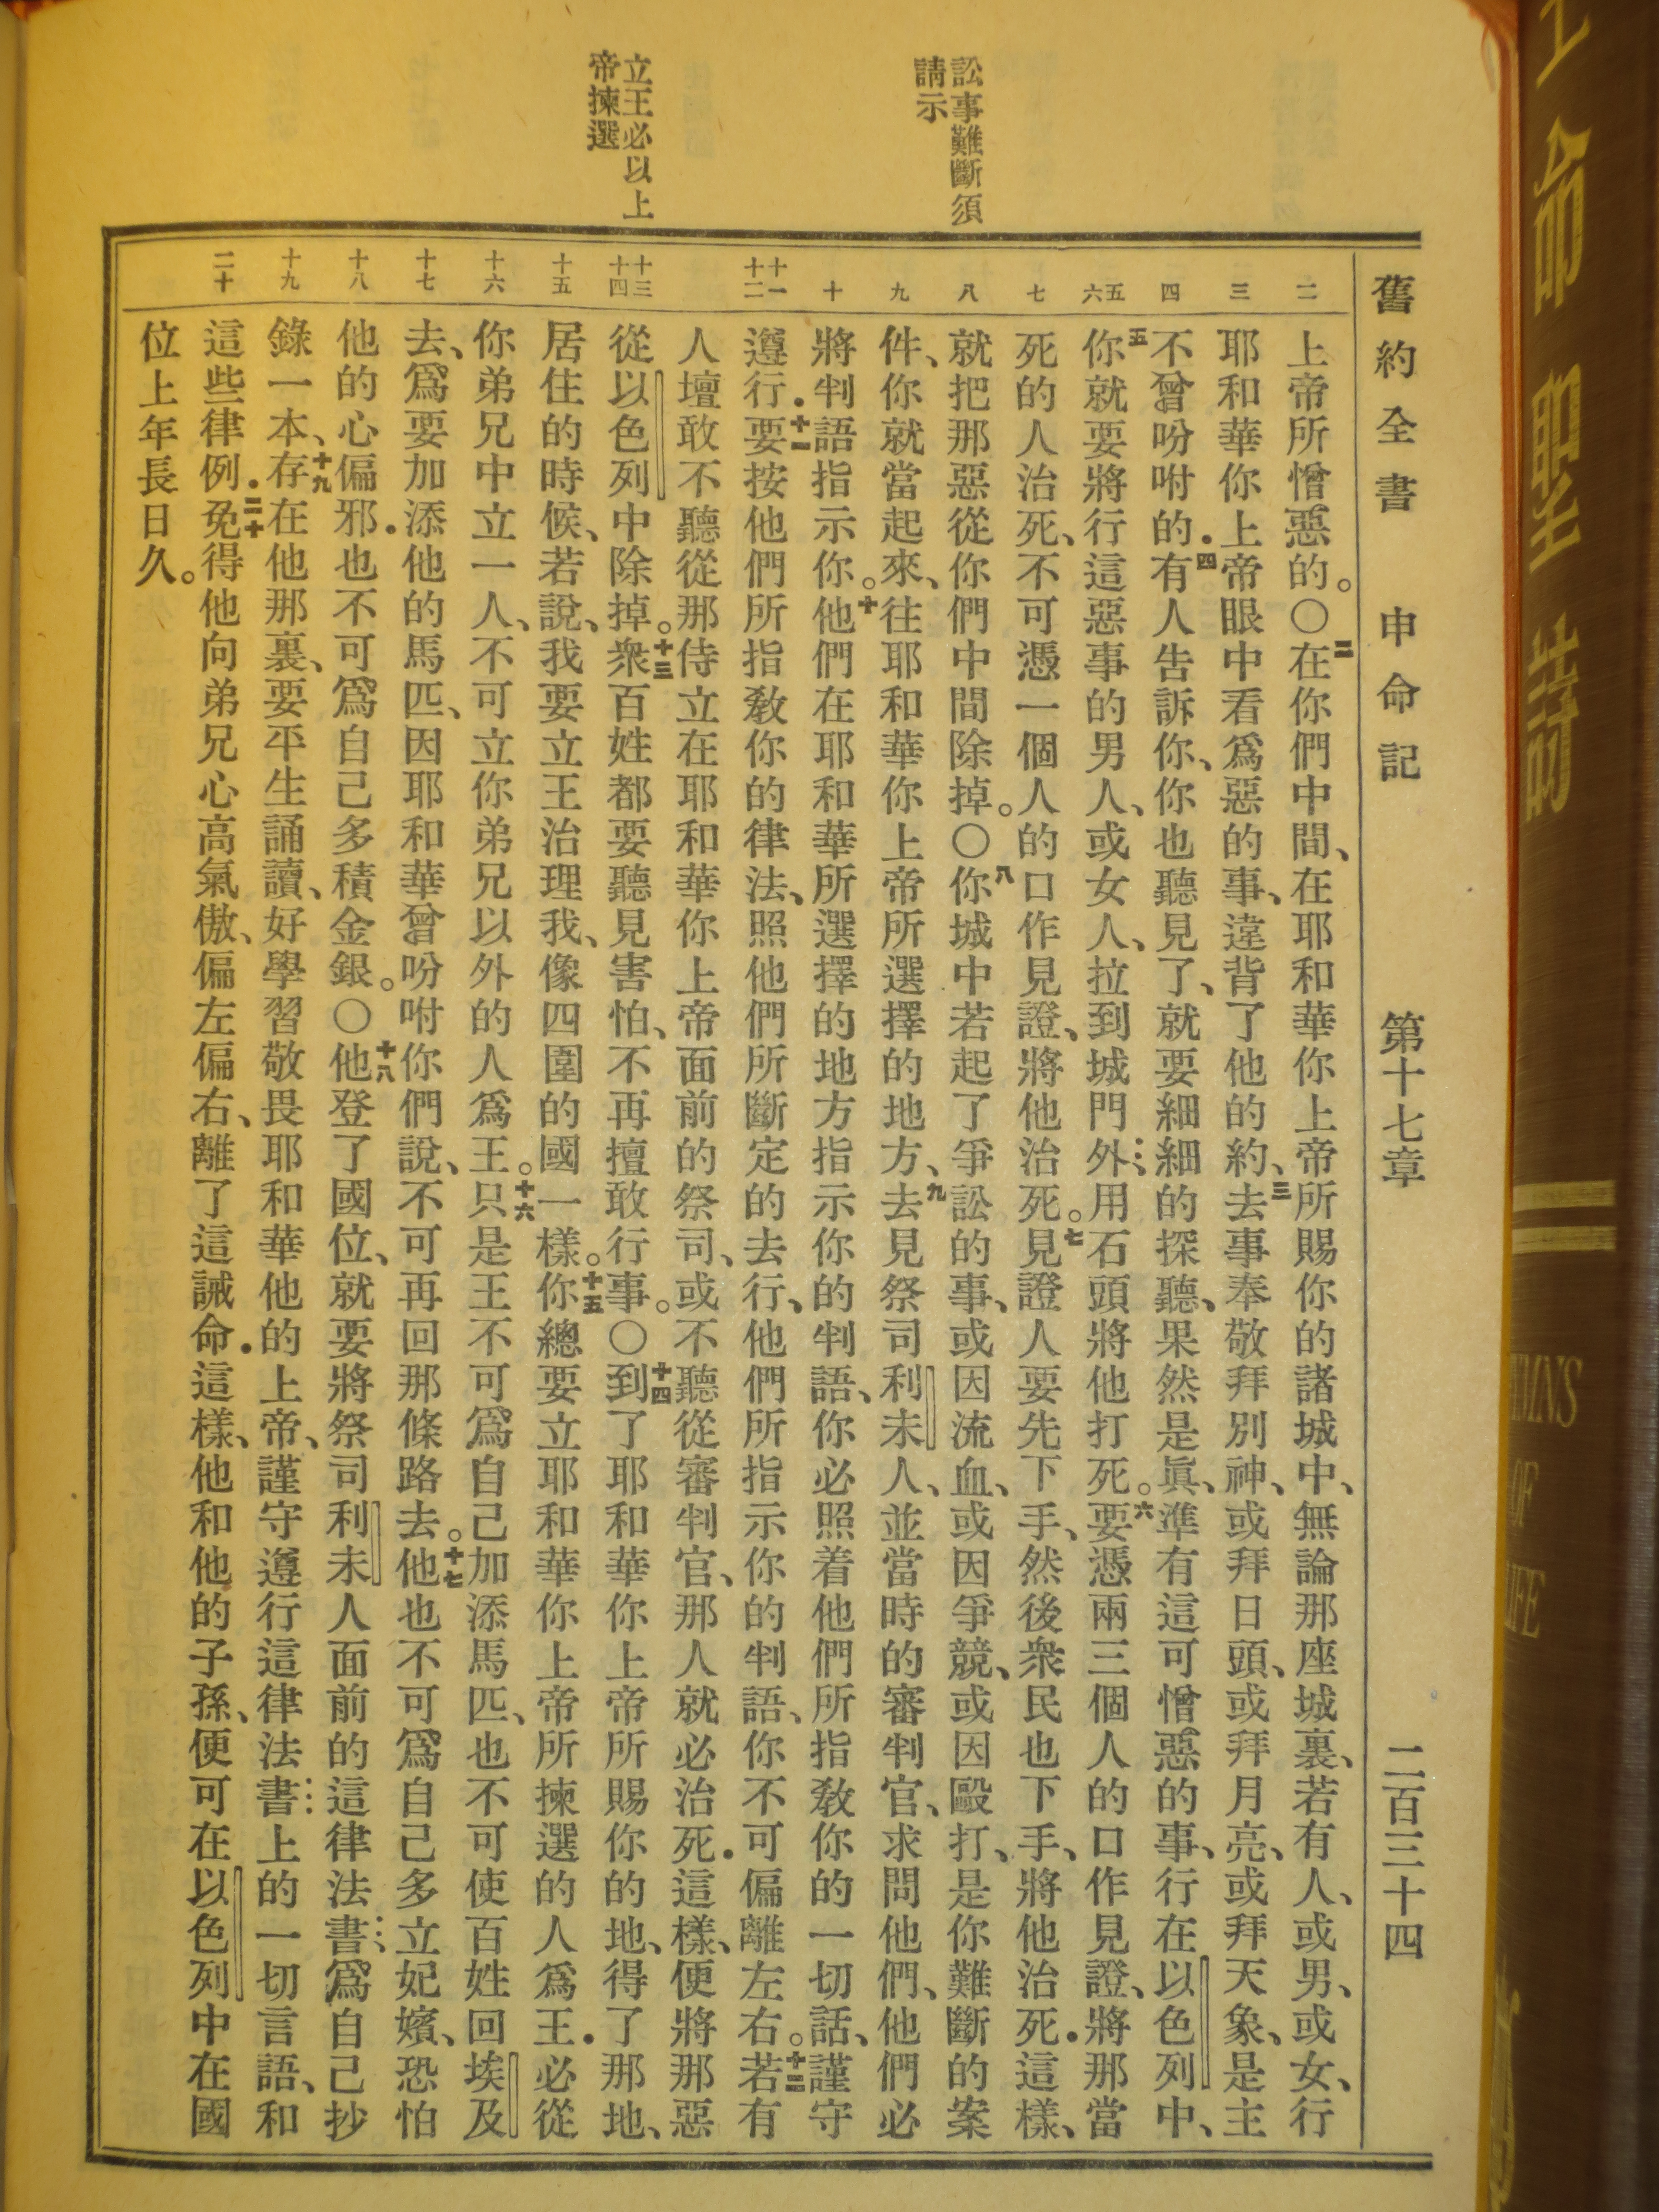 舊約全書 申命記 第十七章 二百三十四
訟事難斷須
請示
立王必以上
帝揀選
二
三
四
五
六
七
八
九
十
十一
十二
十三
十四
十五
十六
十七
十八
十九
二十
上帝所憎惡的。〇二在你們中間、在耶和華你上帝所賜你的諸城中、無論那座城裏、若有人、或男、或女、行
耶和華你上帝眼中看爲惡的事、違背了他的約、三去事奉敬拜別神、或拜日頭、或拜月亮、或拜天象、是主
不曾吩咐的．四有人告訴你、你也聽見了、就要細細的探聽、果然是眞、準有這可憎惡的事、行在以色列中、
五你就要將行這惡事的男人、或女人、拉到城門外、用石頭將他打死。六要憑兩三個人的口作見證、將那當
死的人治死、不可憑一個人的口作見證、將他治死。七見證人要先下手、然後衆民也下手、將他治死．這樣、
就把那惡從你們中間除掉。〇八你城中若起了爭訟的事、或因流血、或因爭競、或因毆打、是你難斷的案
件、你就當起來、往耶和華你上帝所選擇的地方、九去見祭司利未人、並當時的審判官、求問他們、他們必
將判語指示你。十他們在耶和華所選擇的地方指示你的判語、你必照着他們所指敎你的一切話、謹守
遵行．十一要按他們所指敎你的律法、照他們所斷定的去行、他們所指示你的判語、你不可偏離左右。十二若有
人擅敢不聽從那侍立在耶和華你上帝面前的祭司、或不聽從審判官、那人就必治死．這樣、便將那惡
從以色列中除掉。十三衆百姓都要聽見害怕、不再擅敢行事。〇十四到了耶和華你上帝所賜你的地、得了那地、
居住的時候、若說、我要立王治理我、像四圍的國一樣。十五你總要立耶和華你上帝所揀選的人爲王．必從
你弟兄中立一人、不可立你弟兄以外的人爲王。十六只是王不可爲自己加添馬匹、也不可使百姓回埃及
去、爲要加添他的馬匹、因耶和華曾吩咐你們說、不可再回那條路去。十七他也不可爲自己多立妃嬪、恐怕
他的心偏邪．也不可爲自己多積金銀。〇十八他登了國位、就要將祭司利未人面前的這律法書、爲自己抄
錄一本、十九存在他那裏、要平生誦讀、好學習敬畏耶和華他的上帝、謹守遵行這律法書上的一切言語、和
這些律例．二十免得他向弟兄心高氣傲、偏左偏右、離了這誡命．這樣、他和他的子孫、便可在以色列中在國
位上年長日久。
生命聖詩
HYMNS
OF
LIFE